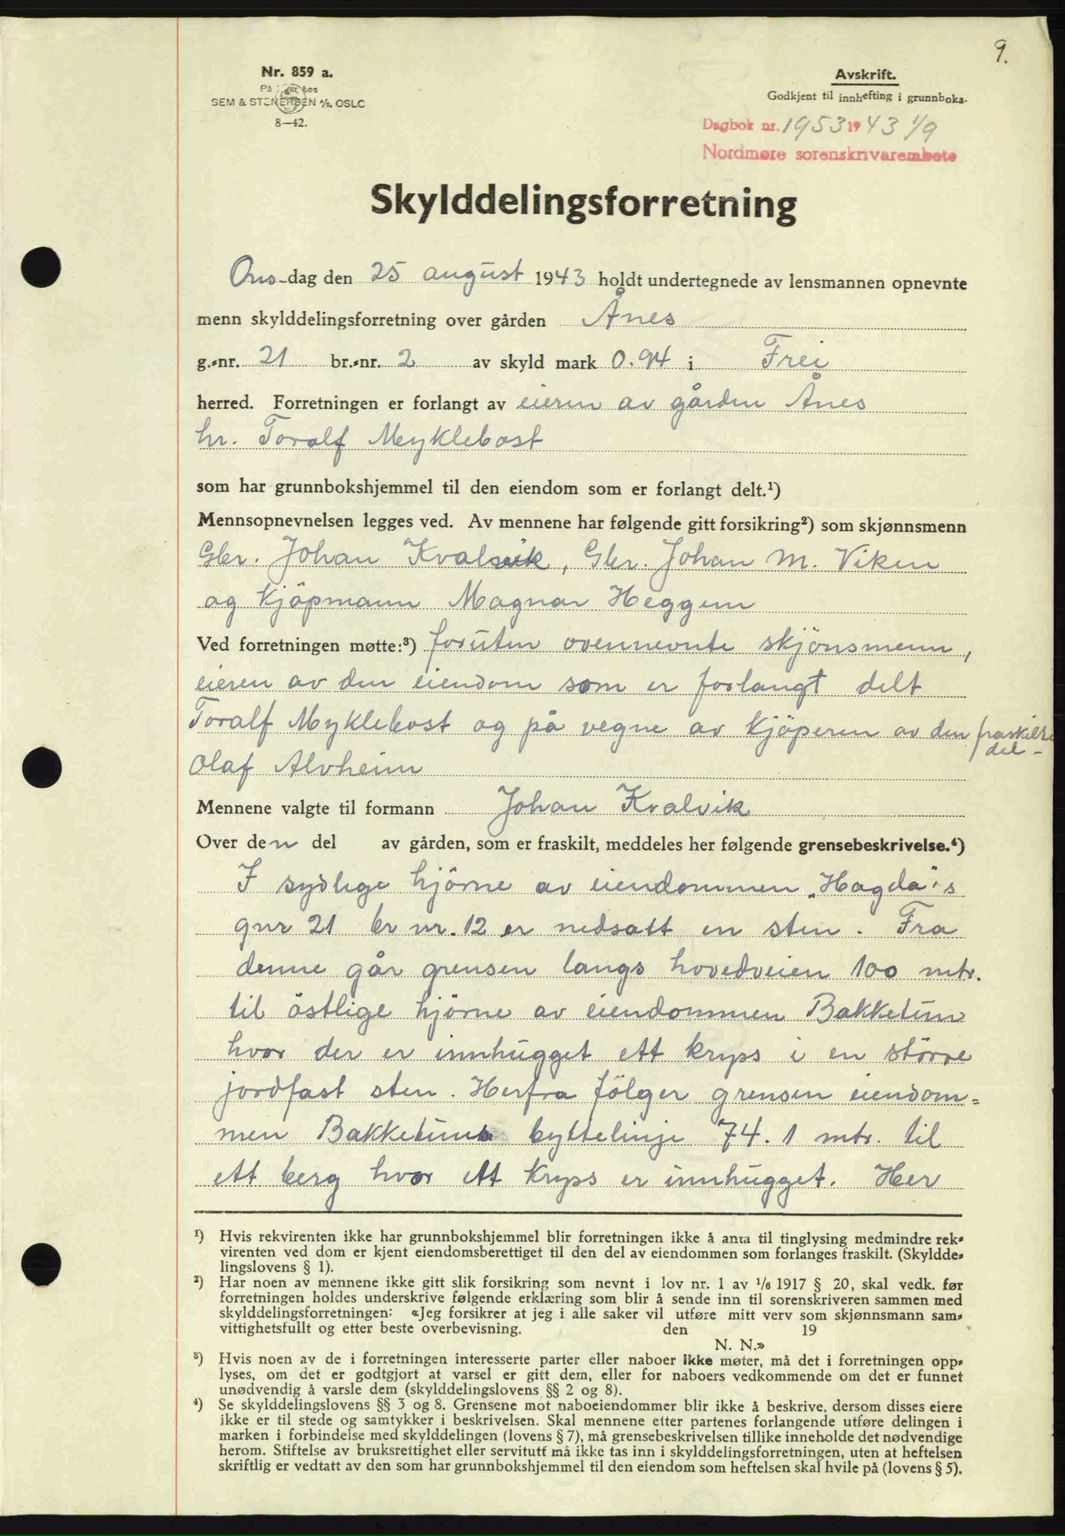 9.
Nr. 859 a.
SEM & STENERSEN A/S, OSLO
8—42.
Avskrift.
Godkjent til innhefting i grunnboka.
Dagbok nr. 1953 1943 1/9
Nordmøre sorenskrivarembete
Skylddelingsforretning
Ons-dag den 25 august 1943 holdt undertegnede av lensmannen opnevnte
menn skylddelingsforretning over gården Ånes
g.-nr. 21 br.-nr. 2 av skyld mark 0.94 i Frei
herred. Forretningen er forlangt av eieren av gården Ånes
hr. Toralf Myklebost
som har grunnbokshjemmel til den eiendom som er forlangt delt.¹)
Mennsopnevnelsen legges ved. Av mennene har følgende gitt forsikring²) som skjønnsmenn
Gbr. Johan Kvalvik, Gbr. Johan M. Viken
og Kjöpmann Magnar Heggem
Ved forretningen møtte:³) foruten ovennevnte skjönsmenn,
eieren av den eiendom som er forlangt delt
Toralf Myklebost og på vegne av kjöperen av den fraskilte
del -
Olaf Alvheim
Mennene valgte til formann Johan Kvalvik
Over den del av gården, som er fraskilt, meddeles her følgende grensebeskrivelse.⁴)
I sydlige hjörne av eiendommen „Hagda"s
gnr 21 br nr. 12 er nedsatt en sten. Fra
denne går grensen langs hovedveien 100 mtr.
til östlige hjörne av eiendommen Bakketun
hvor der er innhugget ett kryss i en större
jordfast sten. Herfra fölger grensen eiendom=
men Bakketuns byttelinje 74.1 mtr. til
ett berg hvor ett kryss er innhugget. Her
¹) Hvis rekvirenten ikke har grunnbokshjemmel blir forretningen ikke å anta til tinglysing medmindre rek-
virenten ved dom er kjent eiendomsberettiget til den del av eiendommen som forlanges fraskilt. (Skyldde-
lingslovens § 1).
²) Har noen av mennene ikke gitt slik forsikring som nevnt i lov nr. 1 av 1/6 1917 § 20, skal vedk. før
forretningen holdes underskrive følgende erklæring som blir å sende inn til sorenskriveren sammen med
skylddelingsforretningen: «Jeg forsikrer at jeg i alle saker vil utføre mitt verv som skjønnsmann sam-
vittighetsfullt og etter beste overbevisning. den 19
N. N.»
³) Hvis noen av de i forretningen interesserte parter eller naboer ikke møter, må det i forretningen opp-
lyses, om det er godtgjort at varsel er gitt dem, eller for naboers vedkommende om det er funnet
unødvendig å varsle dem (skylddelingslovens §§ 2 og 8).
⁴) Se skylddelingslovens §§ 3 og 8. Grensene mot naboeiendommer blir ikke å beskrive, dersom disses eiere
ikke er til stede og samtykker i beskrivelsen. Skal mennene etter partenes forlangende utføre delingen i
marken i forbindelse med skylddelingen (lovens § 7), må grensebeskrivelsen tillike inneholde det nødvendige
herom. Stiftelse av bruksrettighet eller servitutt må ikke tas inn i skylddelingsforretningen, uten at heftelsen
skriftlig er vedtatt av den som har grunnbokshjemmel til den eiendom som heftelsen skal hvile på (lovens § 5).